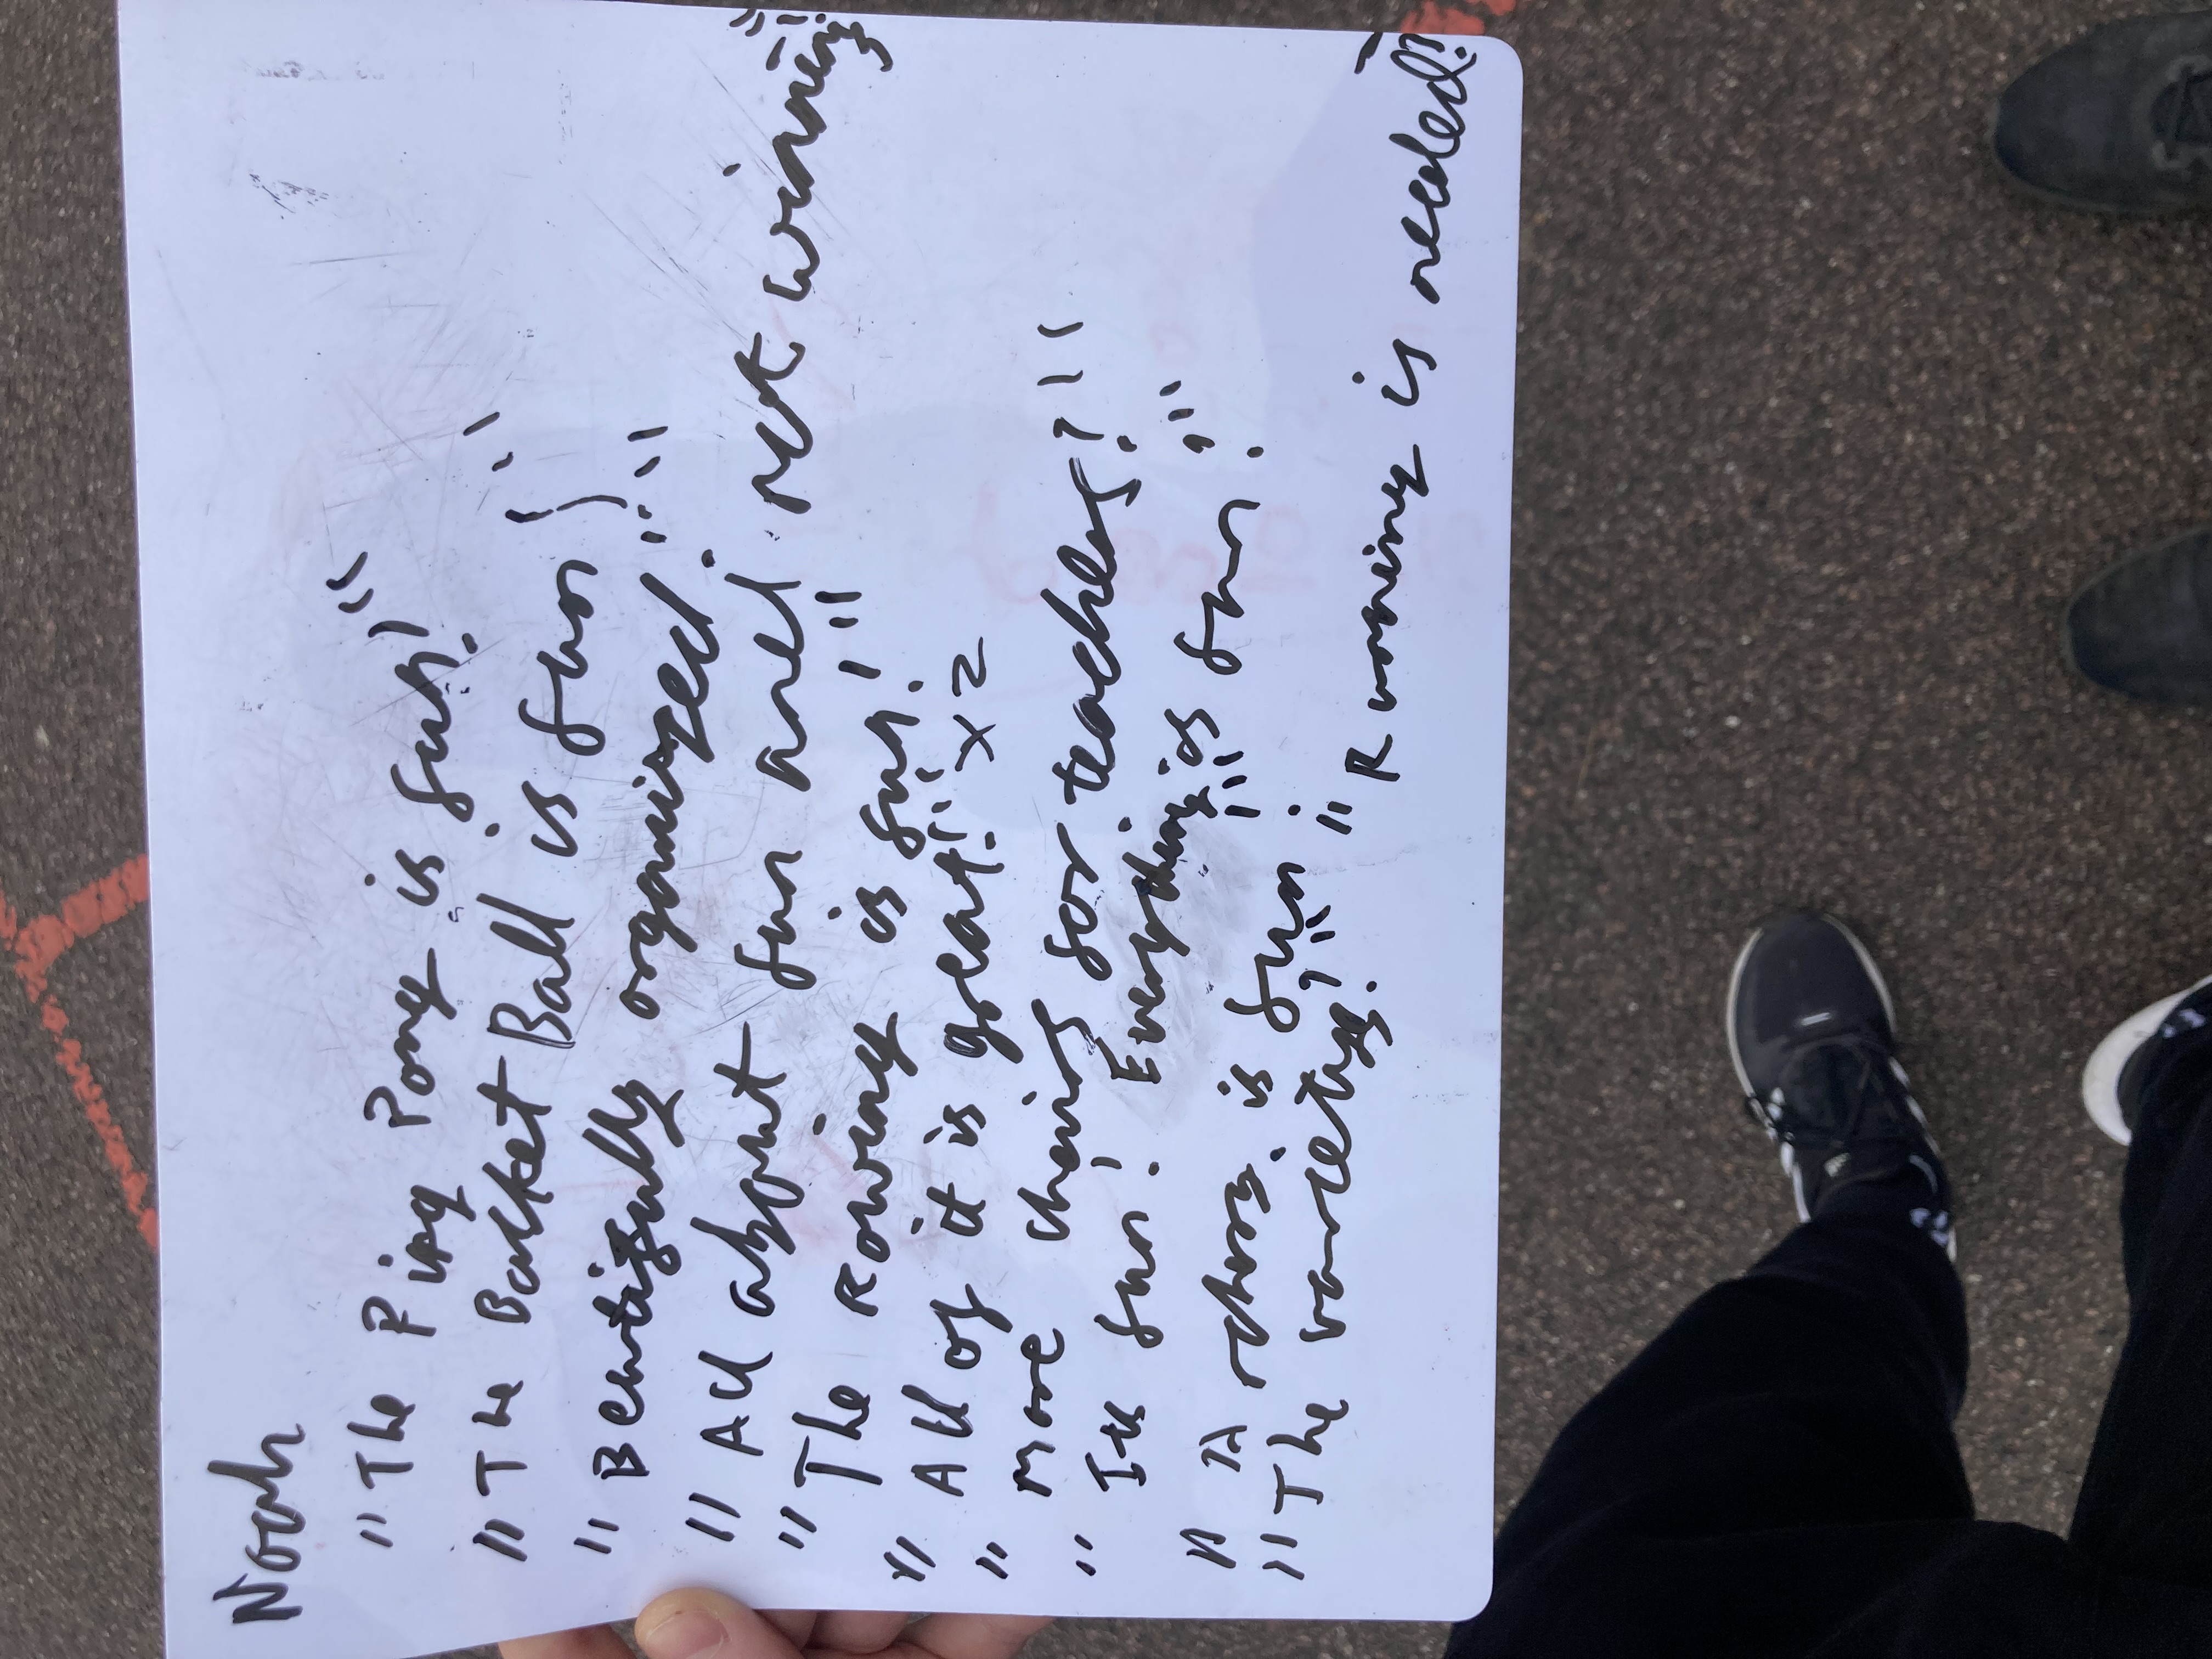 Noah
"The Ping Pong is fun!"
"The Basket Ball is fun!"
"Beutifully organized!"
"All about fun and not wining!"
"The Rowing is fun!"
"All of it is great." x2
"More things for teachers!"
"Its fun! Everything is fun!"
"A is fun!"
"The varietys!" "Running is needed!"